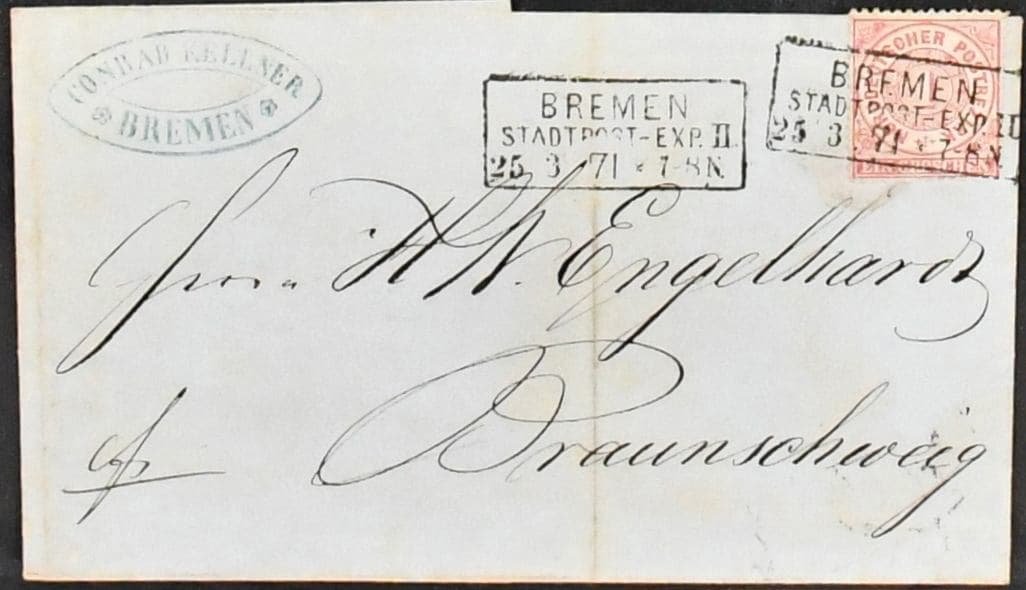 CONRAD KELLNER
BREMEN
BREMEN
STADTPOST-EXP. II
25 3 71 * 7-8 N.
BREMEN
STADTPOST-EXP. II
25 3 71 * 7-8 N.
DEUTSCHER POSTBE
EIN GROSCHEN
Herrn H. W. Engelhardt
Braunschweig